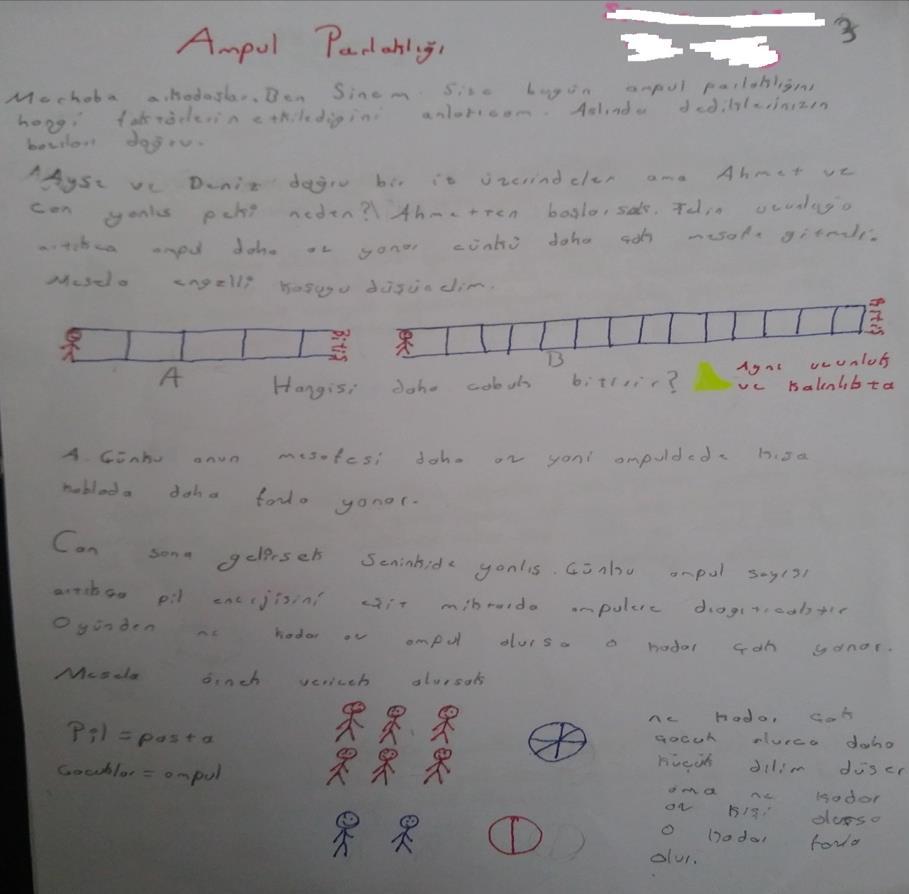 Ampul Parlaklığı
3
Merhaba arkadaşlar. Ben Sinem. Size bugün ampul parlaklığını
hangi faktörlerin etkilediğini anlatıcam. Aslında dediklerinizin
bazıları doğru.
Ayşe ve Deniz doğru bir iz üzerindeler ama Ahmet ve
Can yanlış peki neden? Ahmetten başlarsak. Telin uzunluğu
arttıkca ampul daha az yanar çünkü daha çok mesafe gitmeli.
Mesela engelli koşuyu düşünelim.
Bitiş
Bitiş
A
B
Hangisi daha çabuk bitirir?
Aynı uzunluk
ve kalınlıkta
A. Çünkü onun mesafesi daha az yani ampuldede kısa
kabloda daha fazla yanar.
Can sana gelirsek seninkide yanlış. Çünkü ampul sayısı
arttıkça pil enerjisini eşit miktarda ampulere dıagıtıcaktır
O yünden ne kadar az ampul olursa o kadar çok yanar.
Mesela örnek vericek olursak
Pil = pasta
Çocuklar = ampul
ne kadar çok
çocuk olursa daha
küçük dilim düşer
ama ne kadar
az kişi olursa
o kadar fazla
olur.